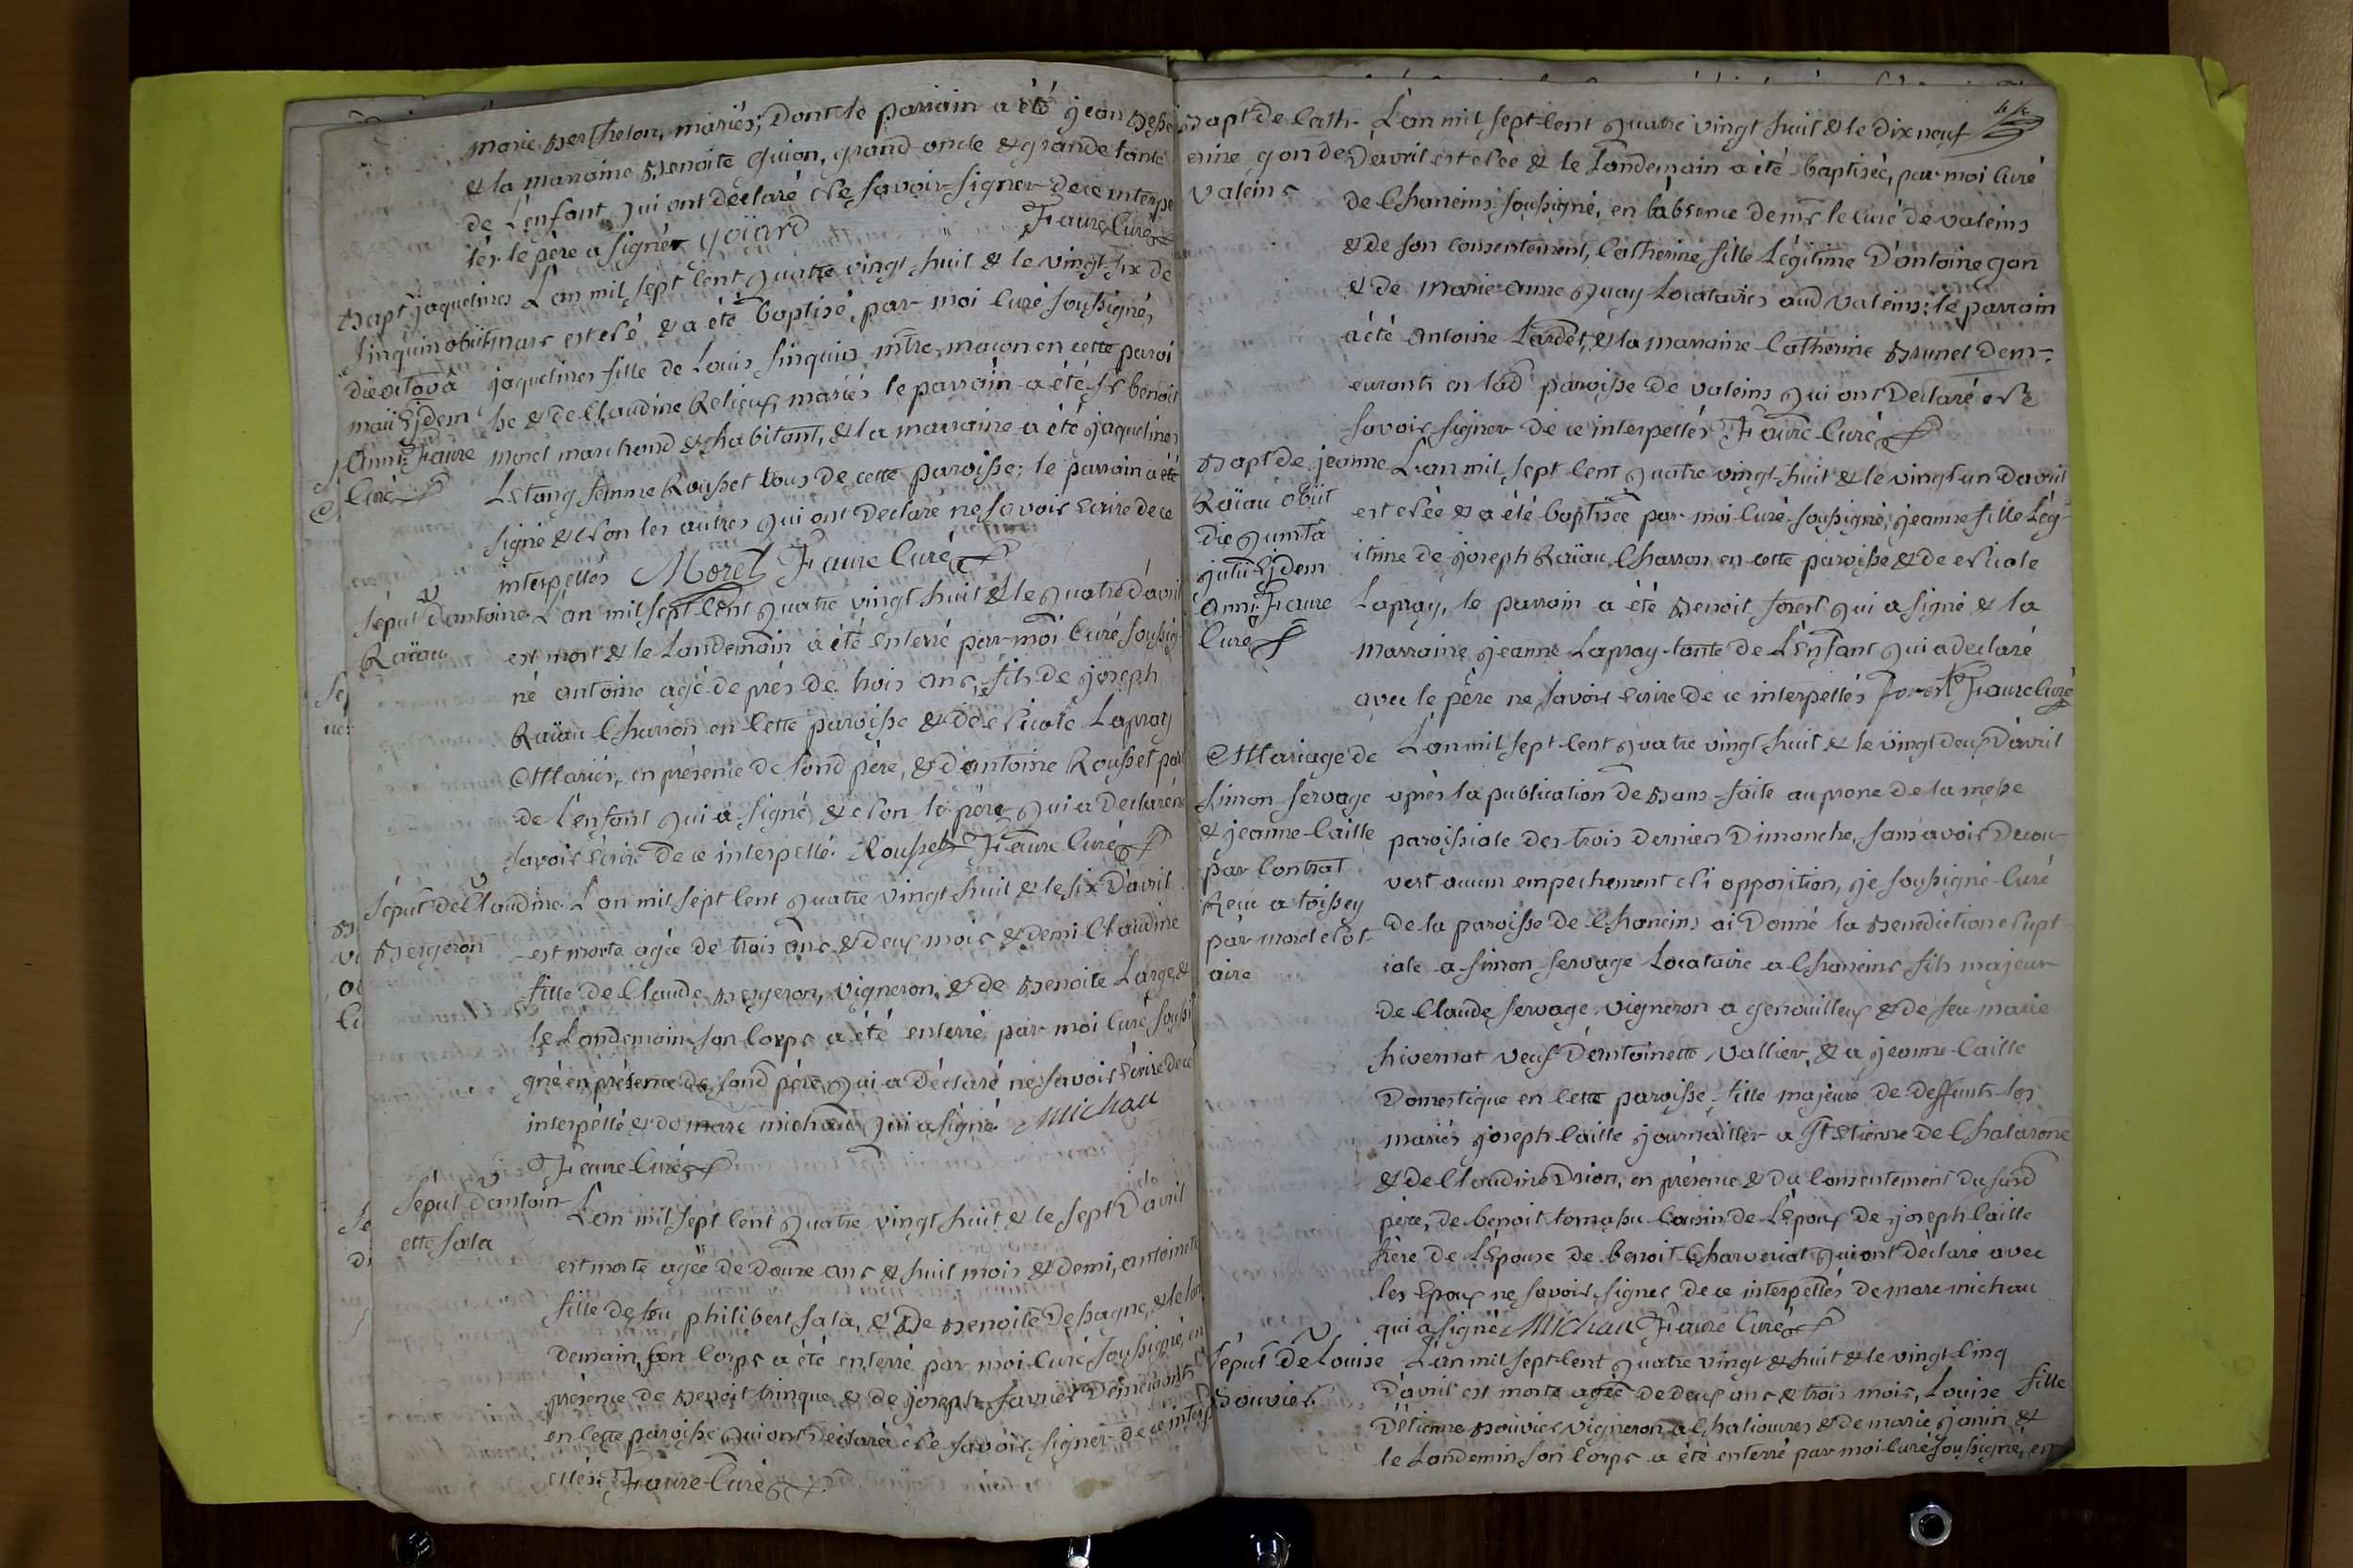 marie Berthelon, mariés; Dont le parrain a été jean
& la marraine Benoite Guion, grand oncle & grande tante
de L'enfant qui ont déclaré Ne savoir signer de ce interpe
lés. le père a signé Goiard Faure Curé
Bapt jaquelines
Sinquin obiit
die octavâ
maii Ejdem
Anni. Faure
Curé
L'an mil sept Cent quatre vingt huit & le vingt six de
mars est Né & a été baptisé, par moi Curé soussigné,
jaquelines fille de Louis Sinquin mtre maçon en cette paroi
sse & de Claudine Relieux, mariés le parrain a été Sr benoit
Morel marchand & habitant, & la marraine a été jaquelines
Letang femme Rousset tous de cette paroisse; le parrain a été
signé & Non les autres qui ont Declaré ne savoir Ecrire de ce
interpellés Morel Faure Curé
Sépult d'antoine
Raïau
L'an mil sept Cent quatre vingt huit & le quatre d'avril
est mort & le Landemain a été Enterré par moi Curé soussig-
né antoine agé de près de trois ans, fils de joseph
Raïau Charron en Cette paroisse & de Nicole Lapray
Mariés, en présence de Sond père, & d'antoine Rousset
de L'enfant qui a signé & Non le père qui a Declaré ne
savoir Ecrire de ce interpellé. Rousset Faure Curé
Sépult de Claudine
Bergeron
L'an mil sept Cent quatre vingt huit & le six D'avril
est morte agée de trois ans & deux mois & demi Claudine
fille de Claude Bergeron, Vigneron, & de Benoite Large, &
le Landemain son Corps a été enterré par moi Curé soussi
gné en présence de Sond père qui a Déclaré ne savoir Ecrire de ce
interpellé & de marc michaud qui a signé Michau
Faure Curé
Sépult d'antoin-
ette Sala
L'an mil sept Cent quatre vingt huit & le sept D'avril
est morte agée de Douze ans & huit mois & demi, antoinette
fille de feu philibert Sala, & De Benoite Dessagne, & le lan
demain, son Corps a été enterré par moi Curé soussigné, en
présence de Benoit trinque & de joseph Favier Demeurants
en Cette paroisse qui ont Declaré Ne savoir signer de ce interp
ellés. Faure Curé
Bapt de Cath-
erine gon de
Valeins
L'an mil sept Cent quatre vingt huit & le Dix neuf
D'avril est Née & le Landemain a été baptisée, par moi Curé
de Chaneins soussigné, en l'absence de mr le Curé de Valeins
& de son Consentement, Catherine fille Légitime D'antoine gon
& de marie anne quay Locataires aud Valeins: le parrain
a été antoine Lardet, & la marraine Catherine Brunet dem-
eurants en lad paroisse de valeins qui ont Declaré Ne
savoir signer de ce interpellés Faure Curé
Bapt de jeanne
Raïau Obiit
die quintâ
julii Ejdem
Anni. Faure
Curé
L'an mil sept Cent quatre vingt huit & le vingt un d'avril
est Née & a été baptisée par moi Curé soussigné, jeanne fille Lég-
itime de joseph Raïau, Charron en cette paroisse & de Nicole
Lapray, le parrain a été Benoit forest qui a signé & la
marraine jeanne Lapray tante de L'Enfant qui a declaré
avec le père ne savoir Ecrire de ce interpellés forest Faure Curé
Mariage de
Simon Servage
& jeanne Caille
par Contrat
Reçu a toissey
par morel Not-
aire
L'an mil sept Cent quatre vingt huit & le vingt deux D'avril
après la publication de Bans faite au prone de la messe
paroissiale des trois derniers Dimanche, sans avoir Decou-
vert aucun empechement Ni opposition, je soussigné Curé
de la paroisse de Chaneins ai Donné la Benediction Nupt-
iale a Simon Servage Locataire a Chaneins fils majeur
de Claude Servage Vigneron a genouilleux & de feu marie
hivernat veuf D'antoinette Vallier, & a jeanne Caille
Domestique en Cette paroisse fille majeure de deffunts les
mariés joseph Caille journailler a St Etienne de Chalarone
& de Claudine Drion, en présence & du Consentement du susd
père, de benoit tomassu Cousin de L'époux de joseph Caille
frère de L'Epouse de benoit Charveriat qui ont déclaré avec
les Epoux ne savoir signer de ce interpellés de marc michau
qui a signé Michau Faure Curé
Sépult de Louise
Bouvier
L'an mil sept Cent quatre vingt & huit & le vingt Cinq
D'avril est morte agée de deux ans & trois mois, Louise fille
D'Etienne Bouvier Vigneron a Chaliouvres & de marie janin &
le Landemin son Corps a été enterré par moi Curé soussigné, en